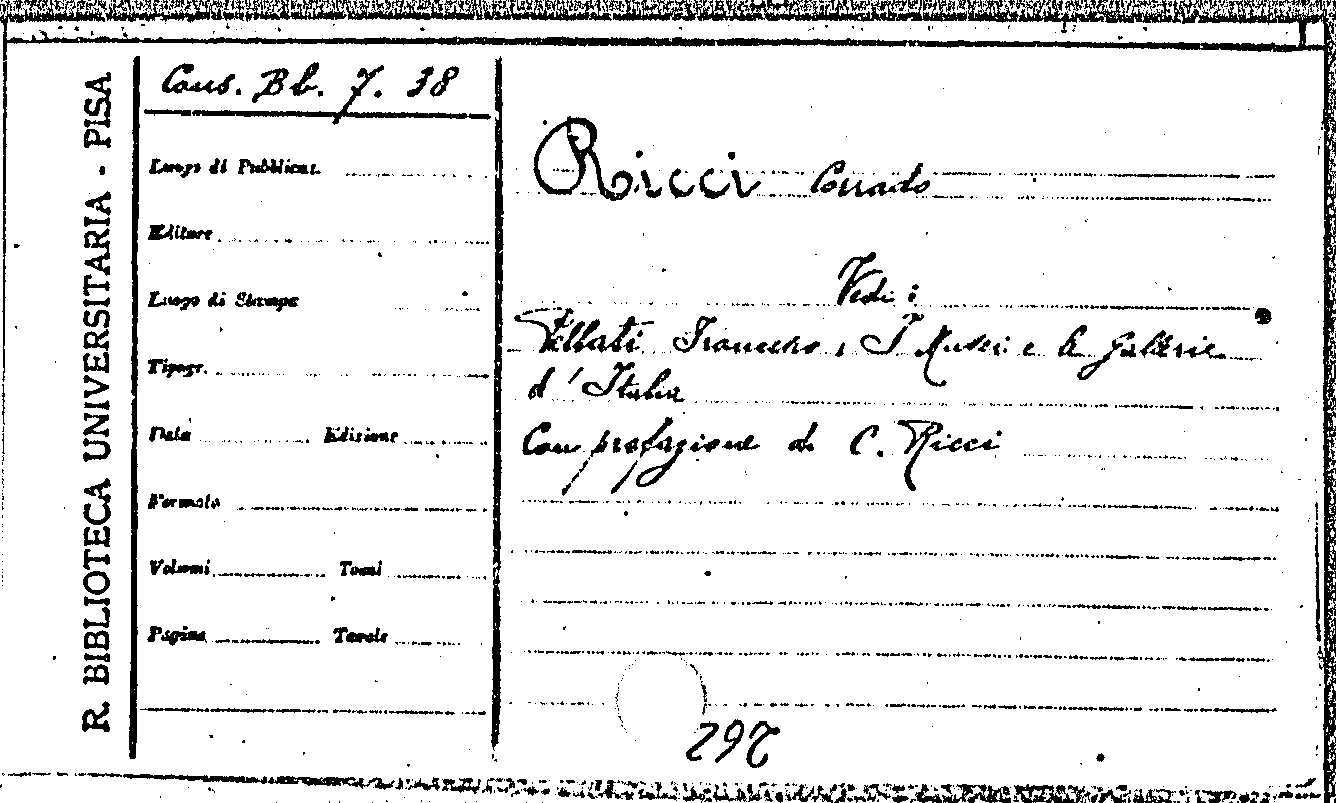 R. BIBLIOTECA UNIVERSITARIA - PISA
Cons. Bb. 7. 38
Luogo di Pubblicaz.
Editore
Luogo di Stampa
Tipogr.
Data Edizione
Formato
Volumi Tomi
Pagine Tavole
Ricci Corrado
Vedi:
Pellati Francesco, I Musei e le Gallerie
d'Italia
Con prefazione di C. Ricci